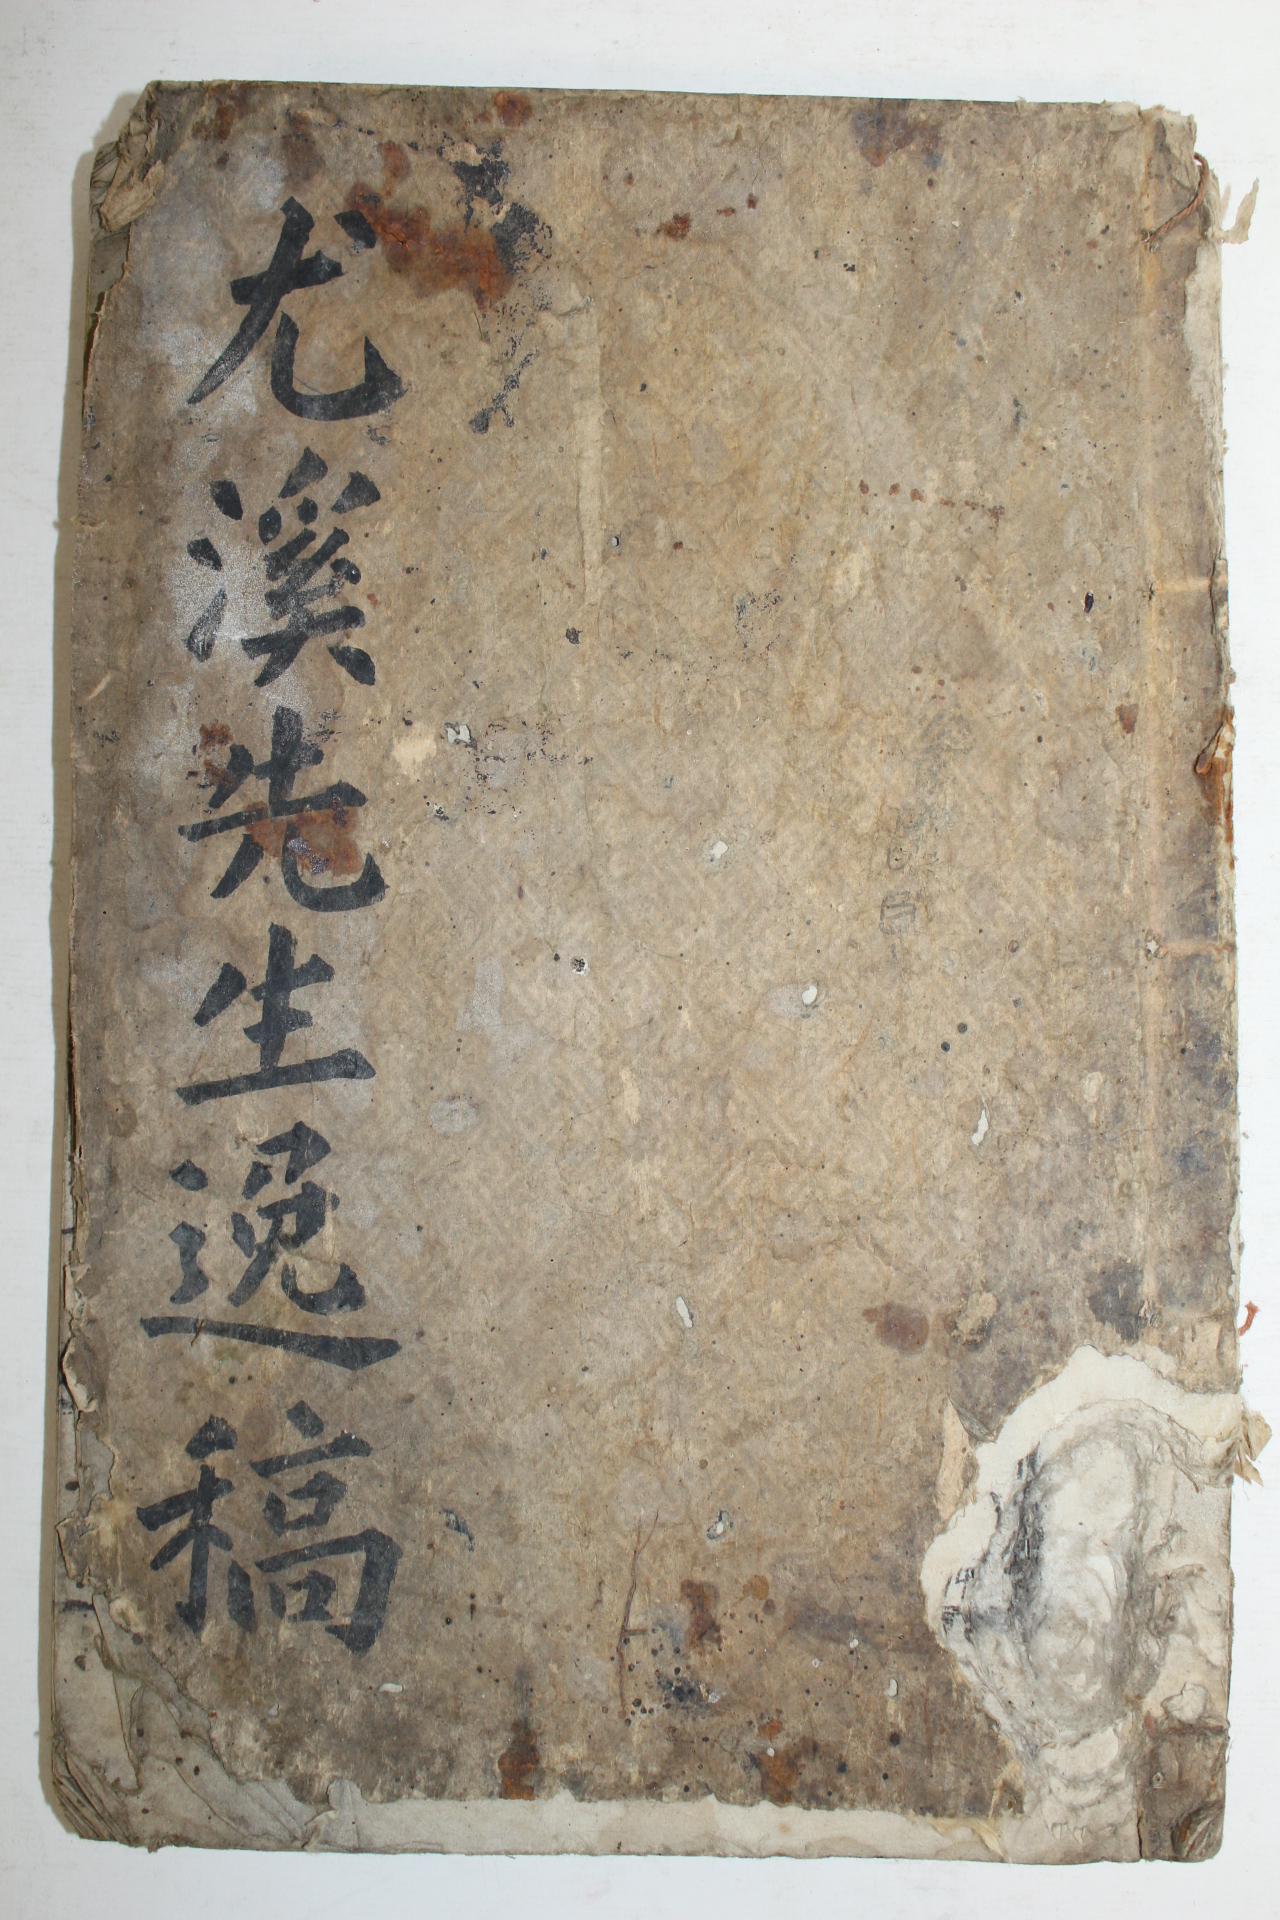 尤溪先生逸稿